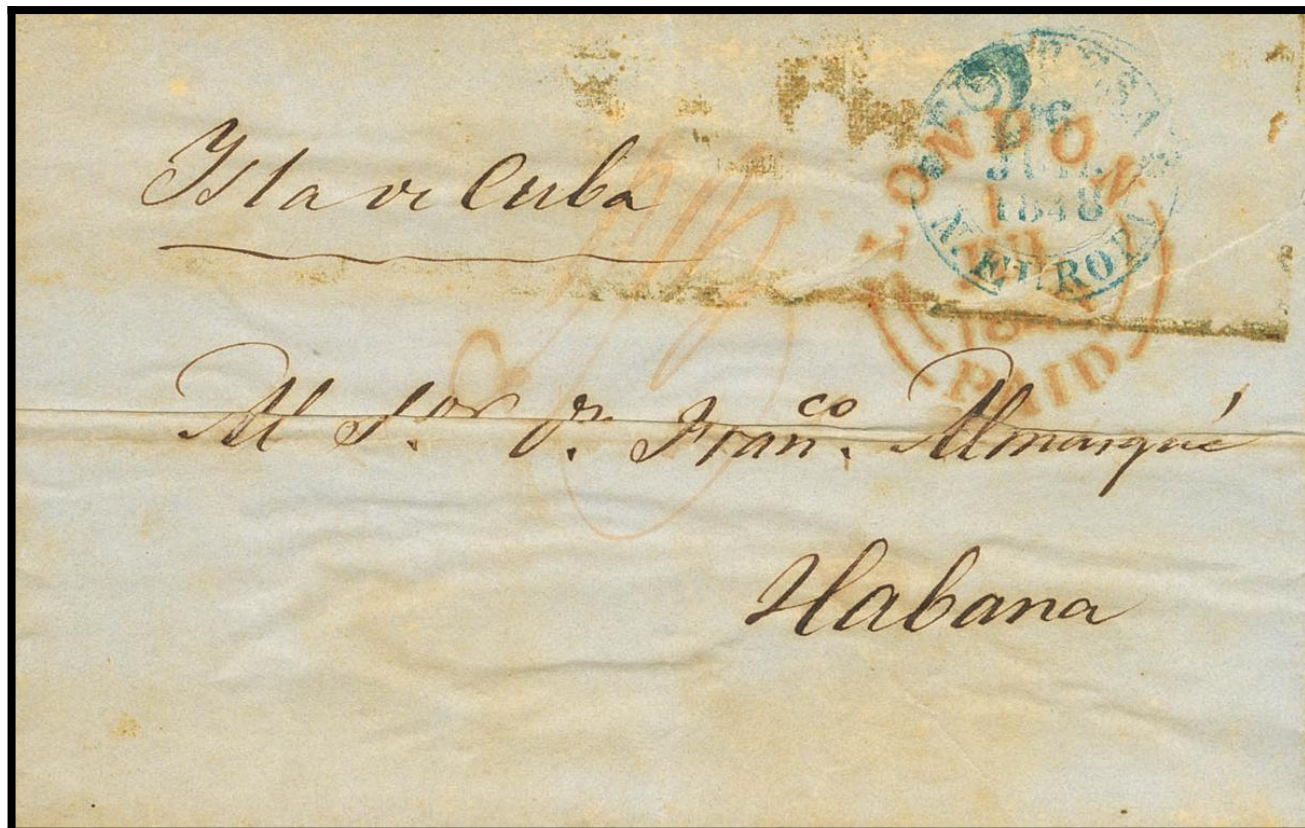 Isla de Cuba
LONDON
JUL
1848
N. EUROPA
PAID
Al S.or D.n Fran.co Almarqué
Habana